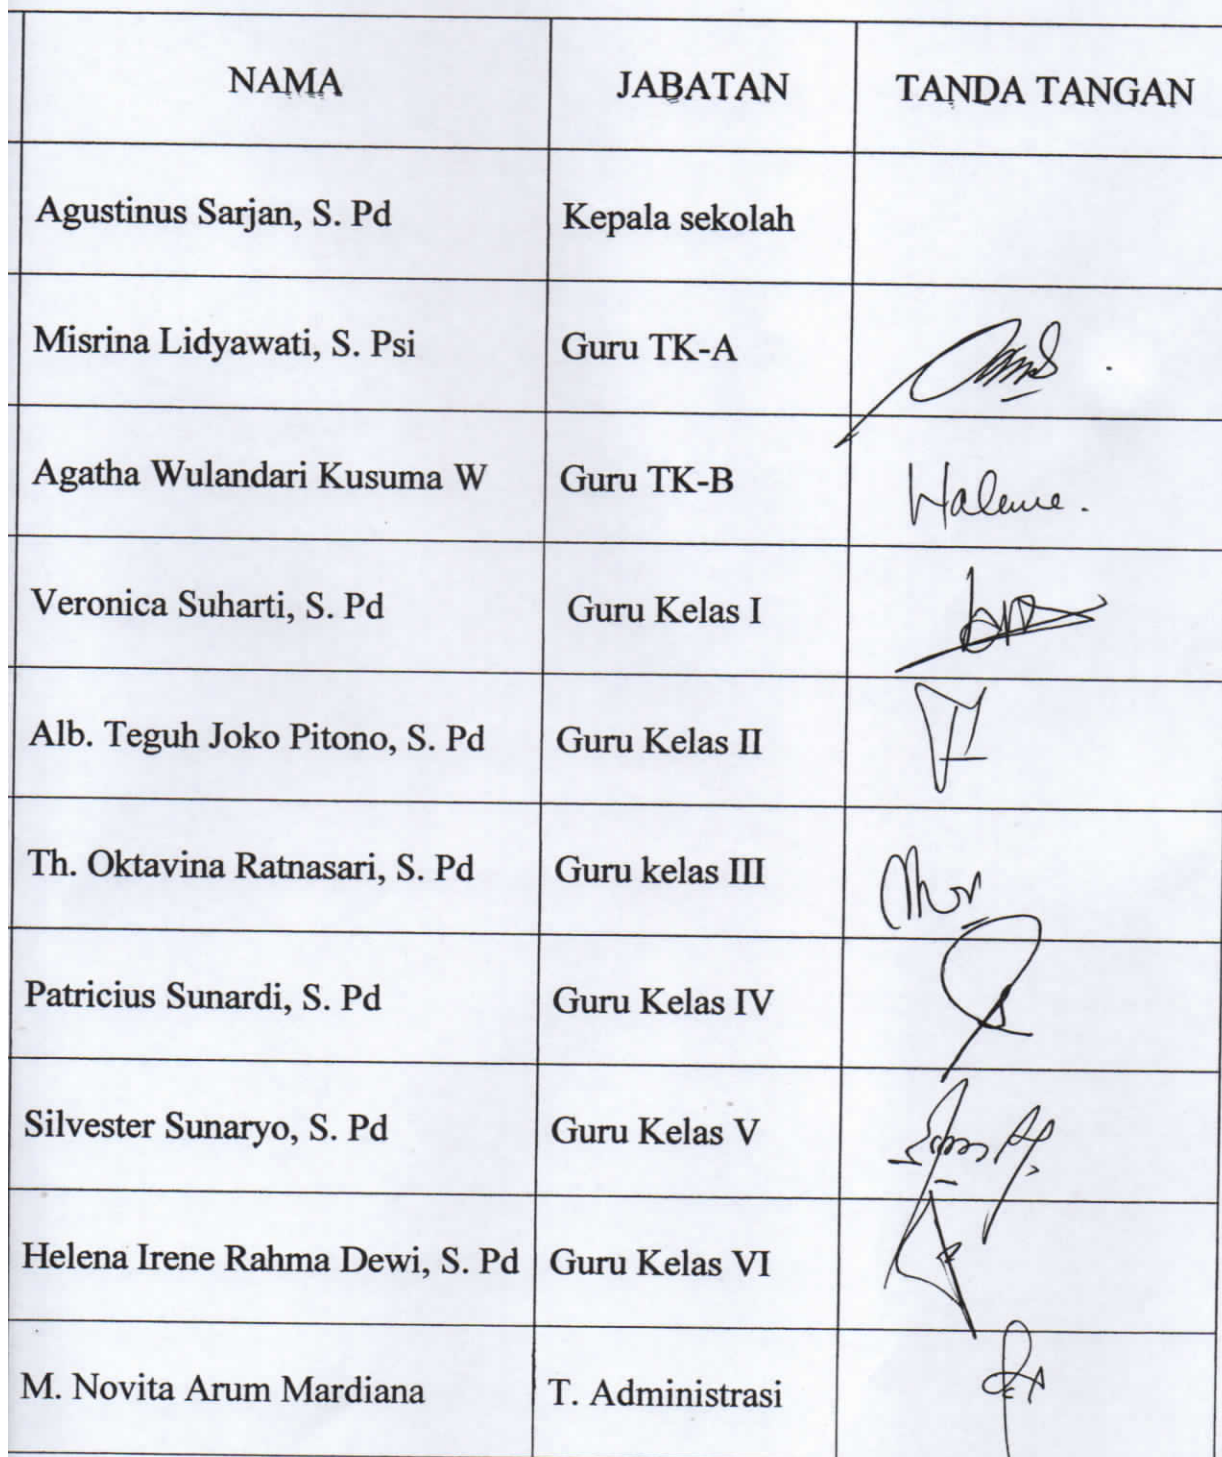 NAMA JABATAN TANDA TANGAN
Agustinus Sarjan, S. Pd Kepala sekolah
Misrina Lidyawati, S. Psi Guru TK-A
Agatha Wulandari Kusuma W Guru TK-B
Veronica Suharti, S. Pd Guru Kelas I
Alb. Teguh Joko Pitono, S. Pd Guru Kelas II
Th. Oktavina Ratnasari, S. Pd Guru kelas III
Patricius Sunardi, S. Pd Guru Kelas IV
Silvester Sunaryo, S. Pd Guru Kelas V
Helena Irene Rahma Dewi, S. Pd Guru Kelas VI
M. Novita Arum Mardiana T. Administrasi